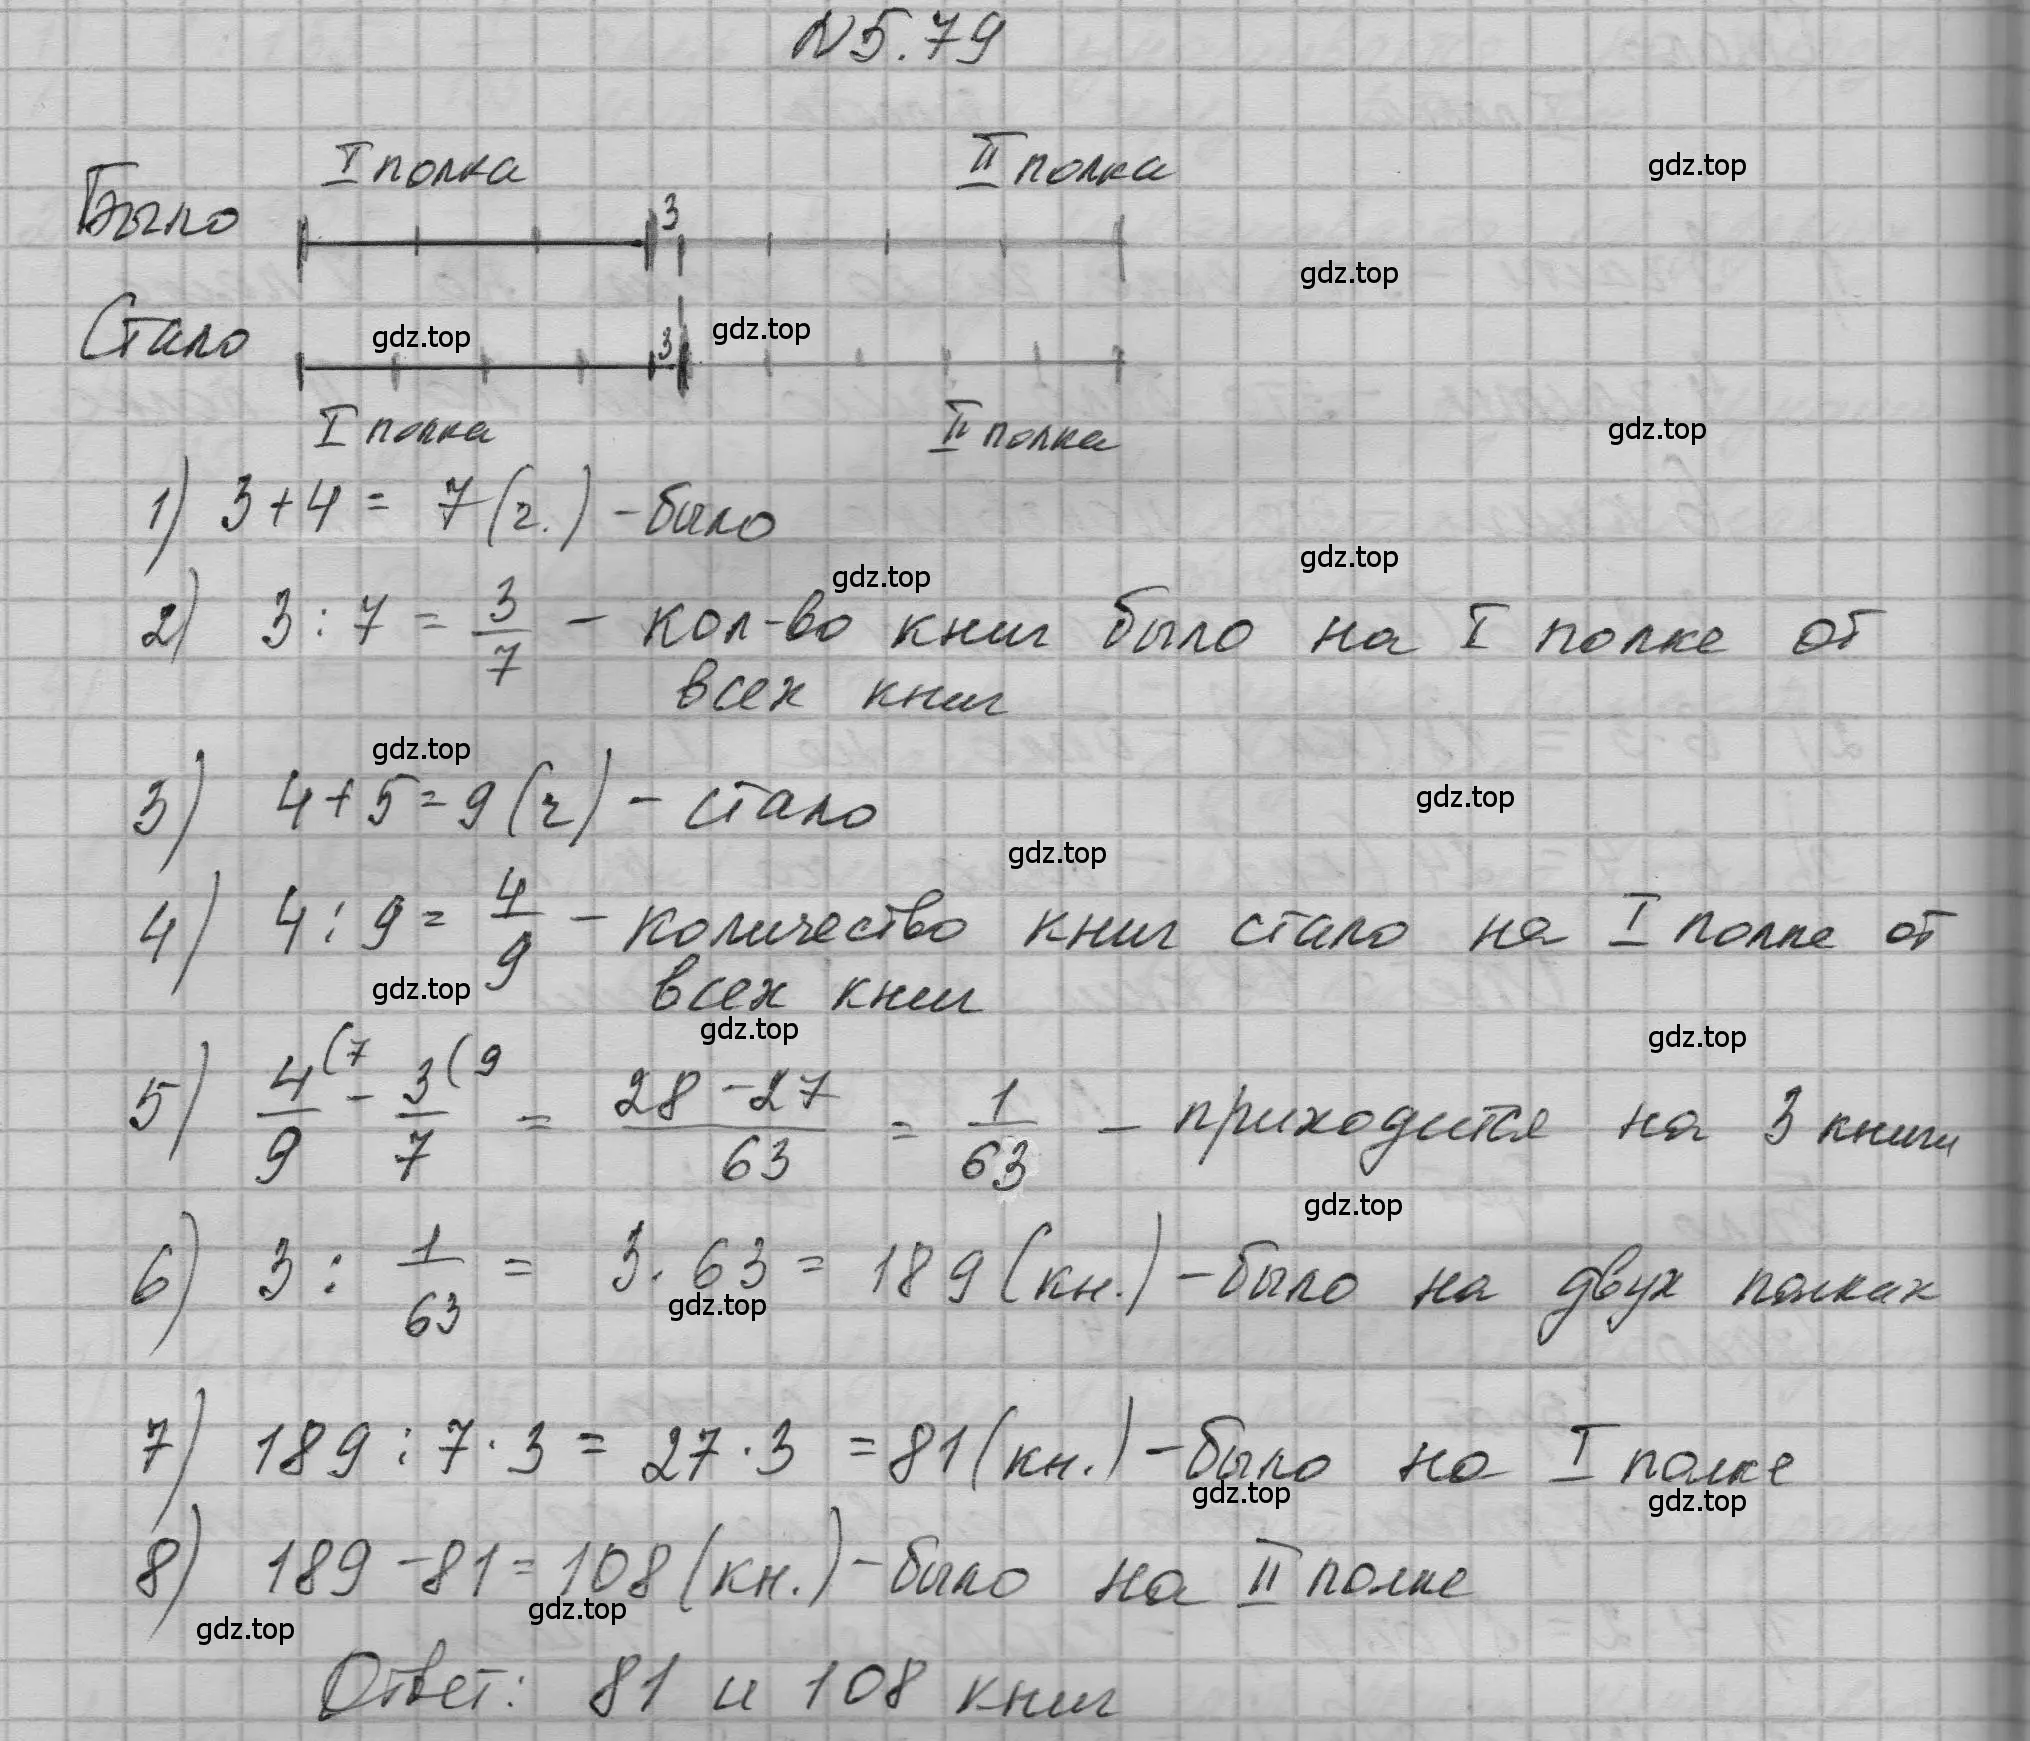 N 5.79
I полка II полка
gdz.top
Было 3
gdz.top
Стало gdz.top 3 gdz.top
I полка II полка
gdz.top
1) 3+4 = 7 (ч.) - было
gdz.top gdz.top
2) 3 : 7 = 3/7 - кол-во книг было на I полке от
всех книг
gdz.top
3) 4+5=9 (ч) - стало
gdz.top
gdz.top
4) 4 : 9 = 4/9 - количество книг стало на I полке от
всех книг
gdz.top
gdz.top
gdz.top
5) 4/9 (7 - 3/7 (9 = 28-27/63 = 1/63 - приходится на 3 книги
gdz.top
6) 3 : 1/63 = 3 · 63 = 189 (кн.) - было на двух полках
gdz.top
7) 189 : 7 · 3 = 27 · 3 = 81 (кн.) - было на I полке
gdz.top gdz.top
8) 189 - 81 = 108 (кн.) - было на II полке
gdz.top gdz.top
Ответ: 81 и 108 книг